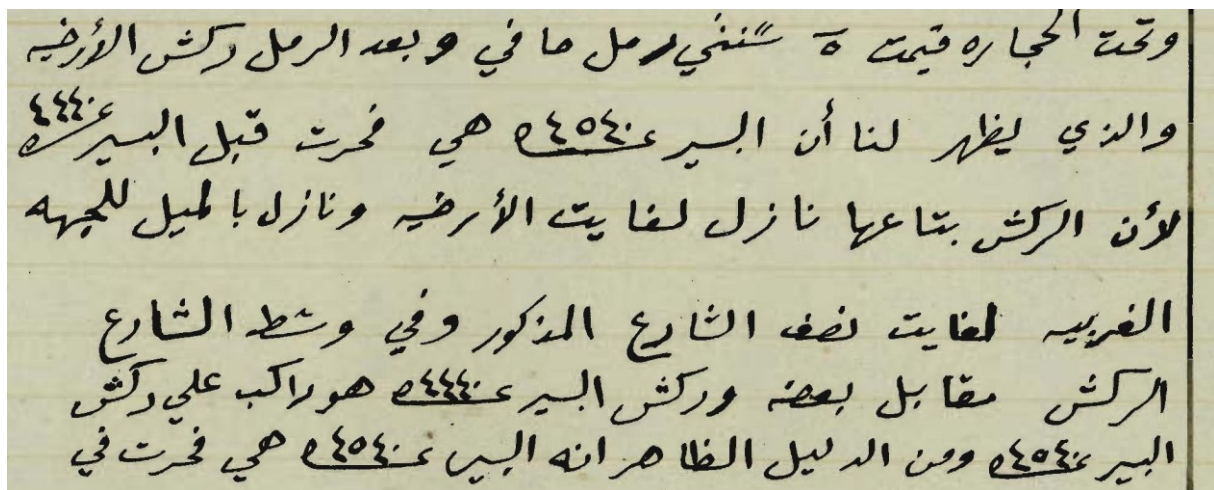 وتحت الحجاره قيمت ٥ سنتي رمل صافي وبعد الرمل ركش الأرضيه
والذي يظهر لنا أن البير عـ ٤٥٤٠ ه هي فحرت قبل البير عـ ٤٤٤٠ ه
لأن الركش بتاعها نازل لغايت الأرضيه ونازل بالميل للجهه
الغربيه لغايت نصف الشارع المذكور وفي وسط الشارع
الركش مقابل بعضه وركش البير عـ ٤٤٤٠ ه هو راكب علي ركش
البير عـ ٤٥٤٠ ه ومن الدليل الظاهر انه البير عـ ٤٥٤٠ ه هي فحرت في